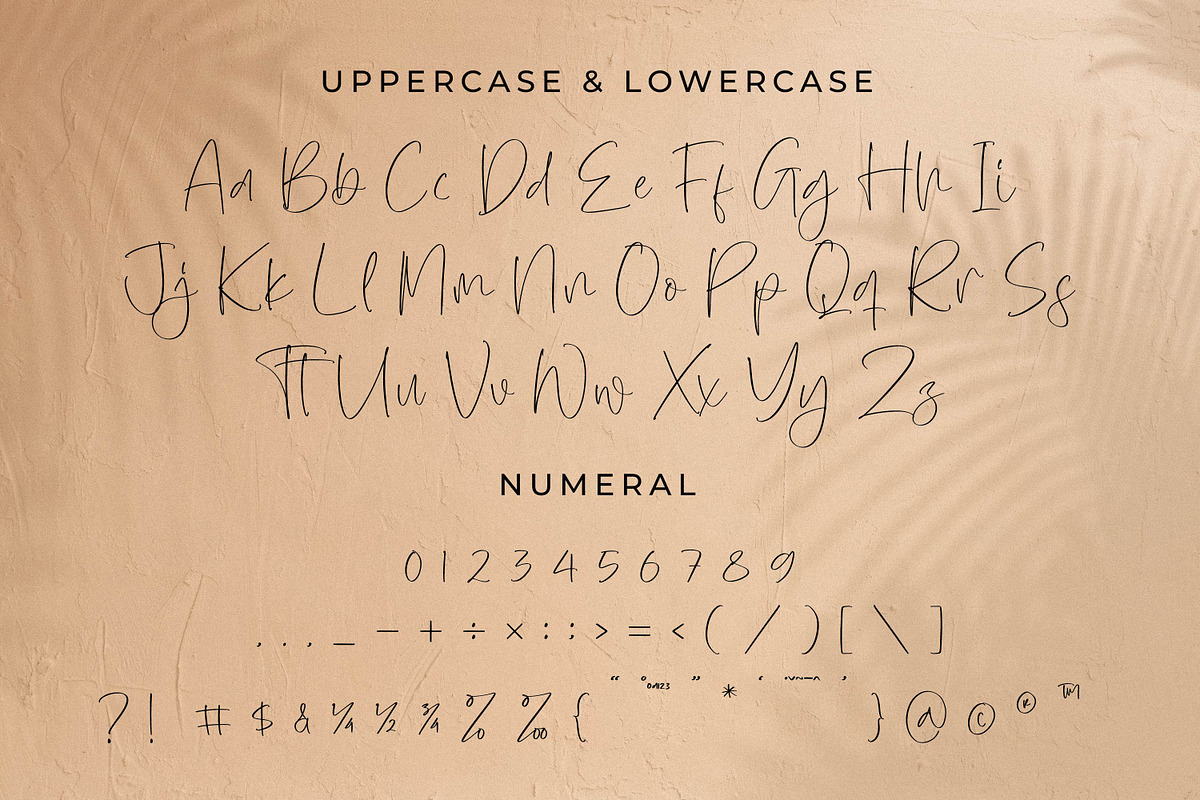 UPPERCASE & LOWERCASE
Aa Bb Cc Dd Ee Ff Gg Hh Ii
Jj Kk Ll Mm Nn Oo Pp Qq Rr Ss
Tt Uu Vv Ww Xx Yy Zz
NUMERAL
0 1 2 3 4 5 6 7 8 9
, . , _ − + ÷ × : ; > = < ( / ) [ \ ]
? ! # $ & ¼ ½ ¾ % ‰ { “ ° ” * ‘ ’ } @ © ® ™